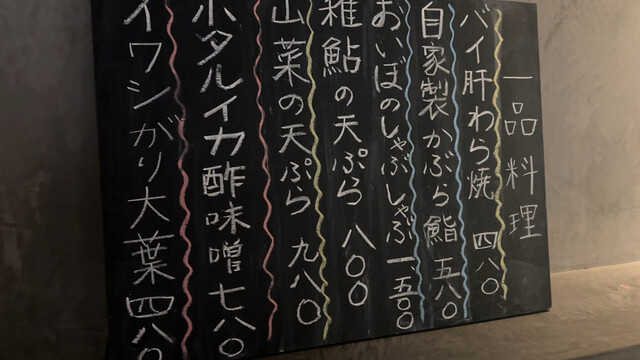 一品料理
バイ肝わら焼 四八〇
自家製かぶら鮨 五八〇
おいぼのしゃぶしゃぶ 一、五〇〇
稚鮎の天ぷら 八〇〇
山菜の天ぷら 九八〇
ホタルイカ酢味噌 七八〇
イワシがり大葉 四八〇